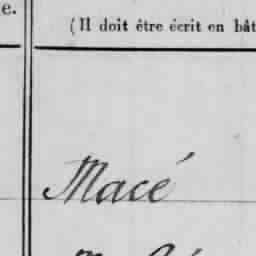 e.
(Il doit être écrit en bât
Macé